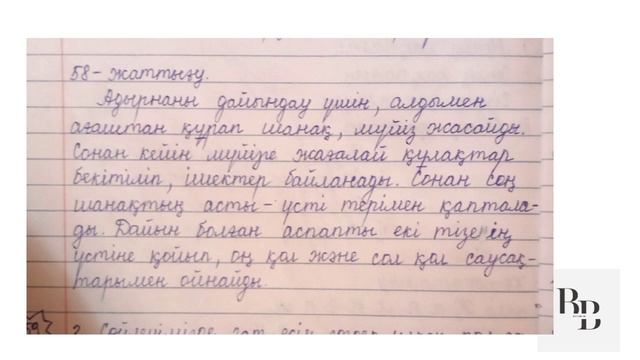 58 - жаттығу.
Адырнаны дайындау үшін, алдымен
ағаштан құрап шанақ, мүйіз жасайды.
Сонан кейін мүйізге жағалай құлақтар
бекітіліп, ішектер байланады. Сонан соң
шанақтың асты-үсті терімен қаптала-
ды. Дайын болған аспапты екі тізенің
үстіне қойып, оң қол және сол қол саусақ-
тарымен ойнайды.